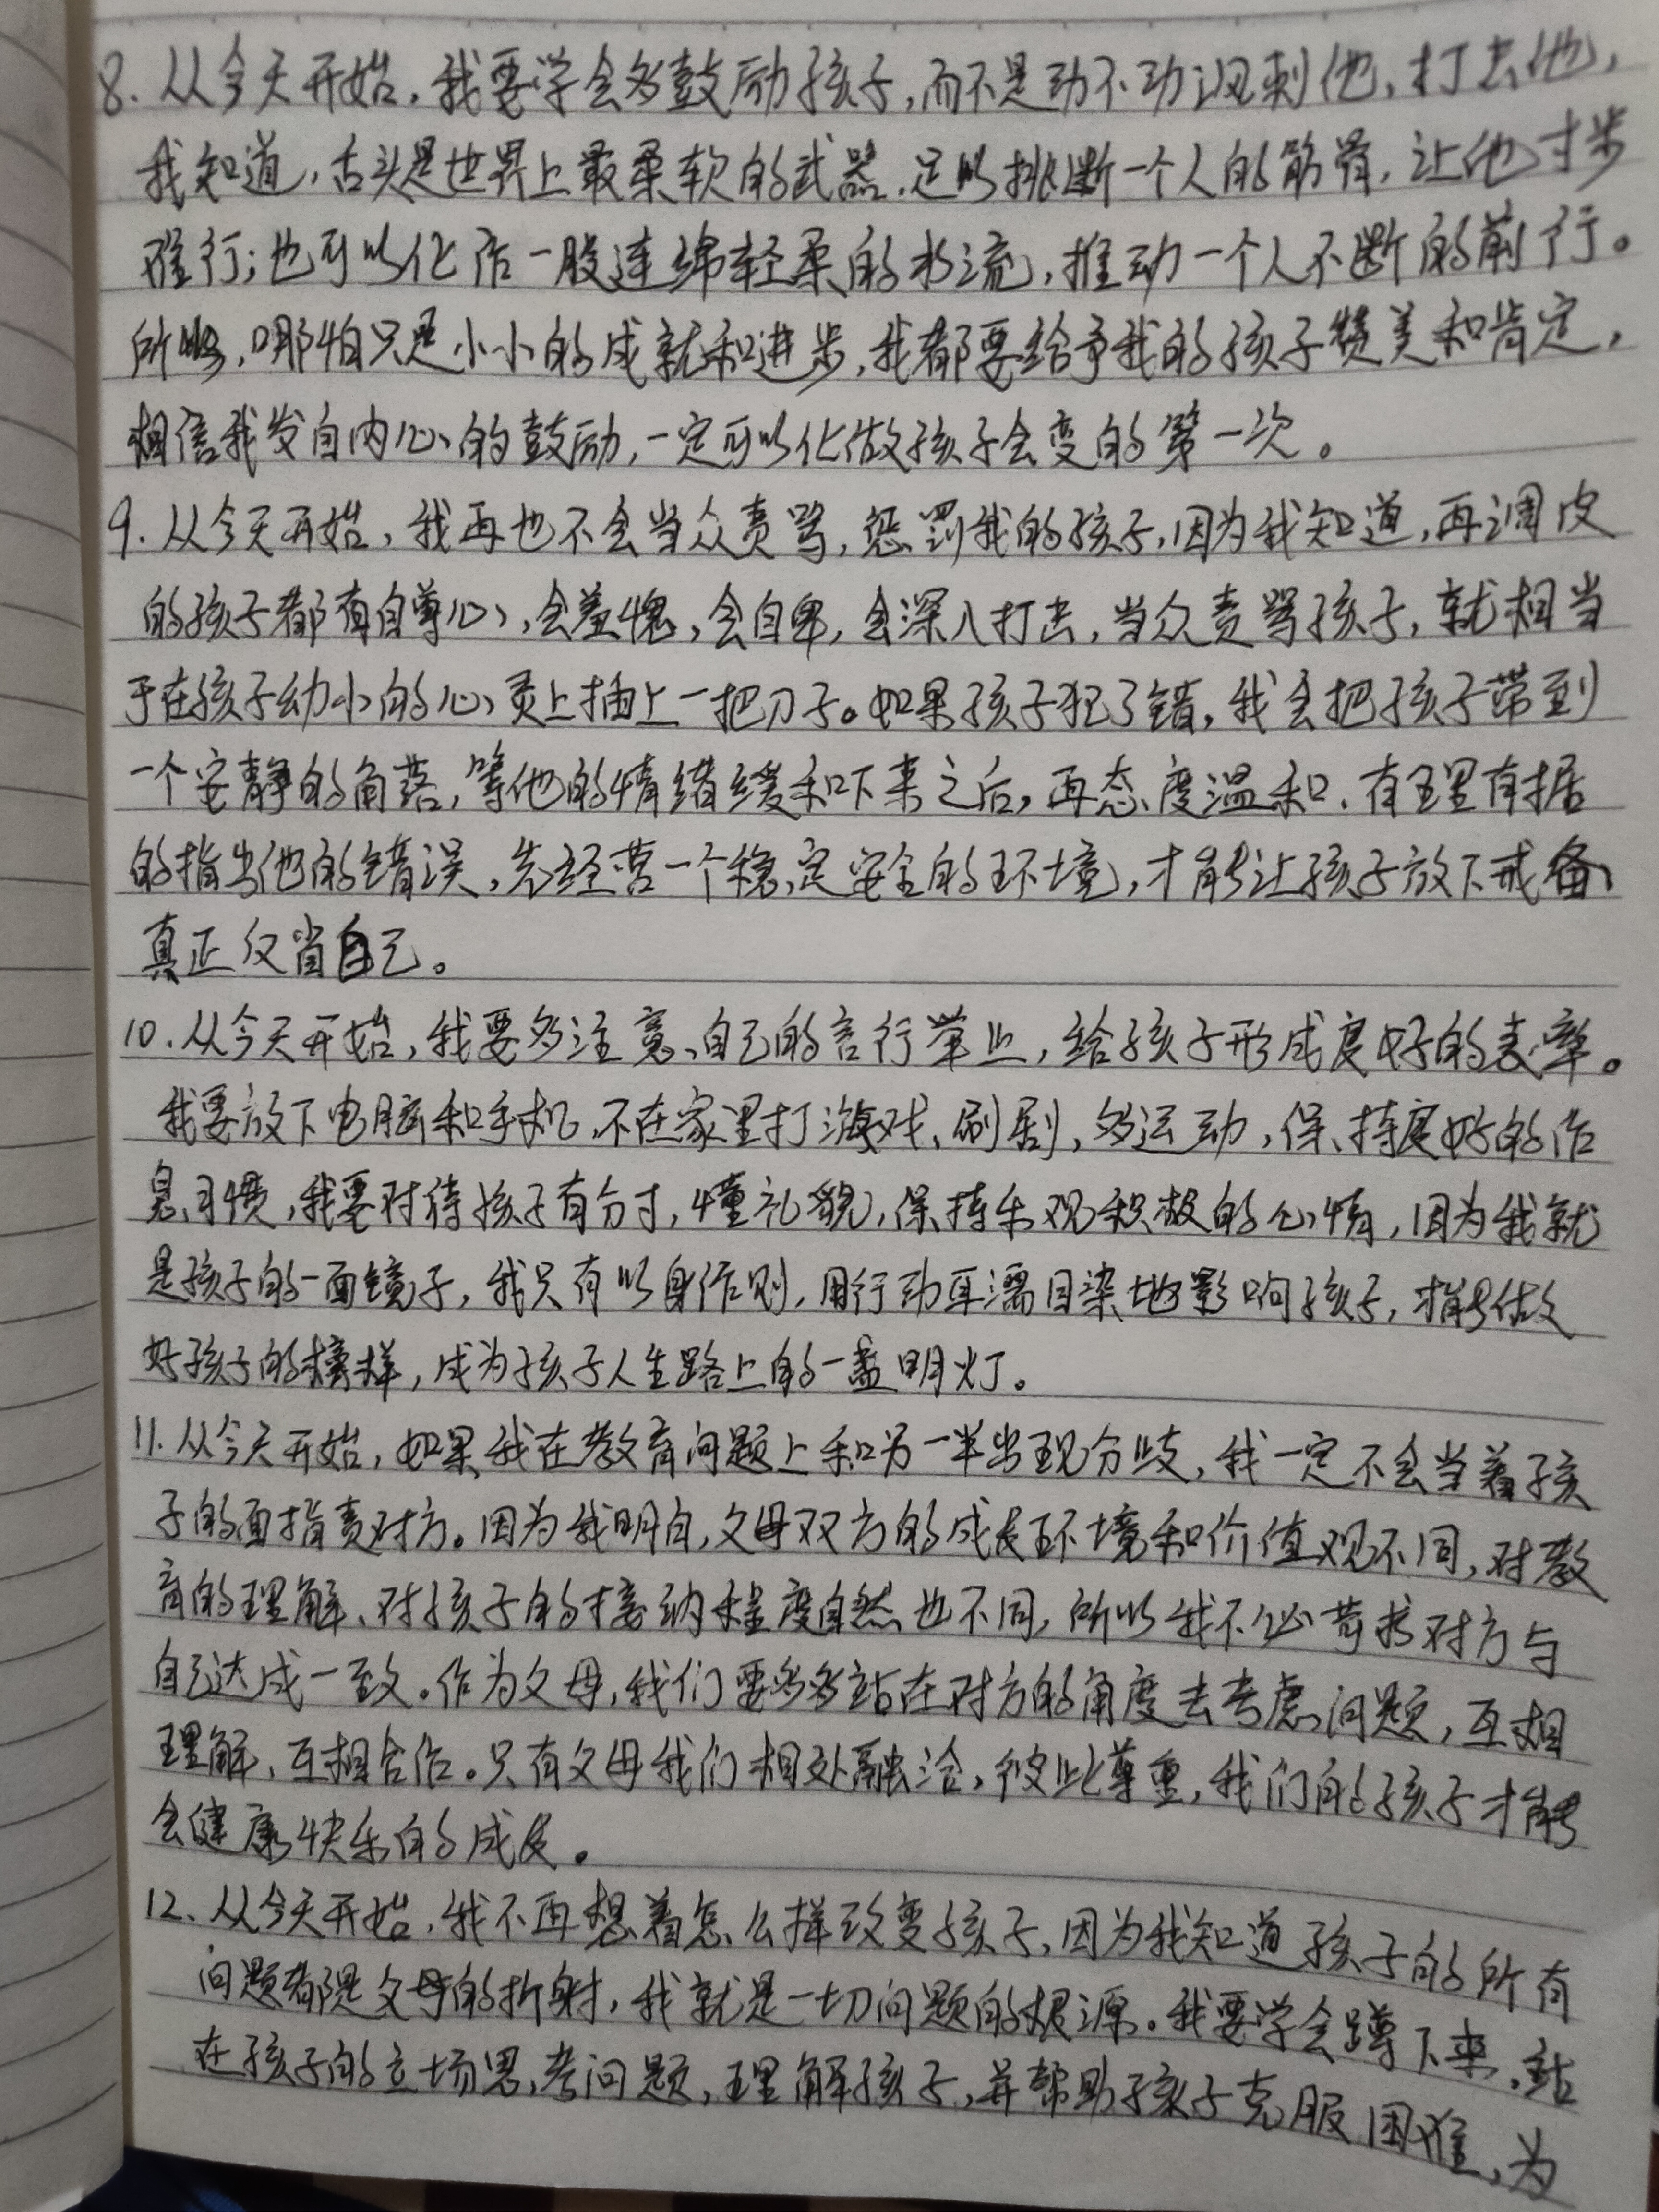 8. 从今天开始，我要学会多鼓励孩子，而不是动不动讽刺他，打击他，
我知道，舌头是世界上最柔软的武器，足以挑断一个人的筋骨，让他寸步
难行；也可以化作一股连绵轻柔的水流，推动一个人不断的前行。
所以，哪怕只是小小的成就和进步，我都要给予我的孩子赞美和肯定，
相信我发自内心的鼓励，一定可以化做孩子会变的第一次。
9. 从今天开始，我再也不会当众责骂，惩罚我的孩子，因为我知道，再调皮
的孩子都有自尊心，会羞愧，会自卑，会深入打击，当众责骂孩子，就相当
于在孩子幼小的心灵上插上一把刀子。如果孩子犯了错，我会把孩子带到
一个安静的角落，等他的情绪缓和下来之后，再态度温和、有理有据
的指出他的错误，先经营一个稳定安全的环境，才能让孩子放下戒备，
真正反省自己。
10. 从今天开始，我要多注意自己的言行举止，给孩子形成良好的表率。
我要放下电脑和手机，不在家里打游戏、刷剧，多运动，保持良好的作
息习惯，我要对待孩子有分寸，懂礼貌，保持乐观积极的心情，因为我就
是孩子的一面镜子，我只有以身作则，用行动耳濡目染地影响孩子，才能做
好孩子的榜样，成为孩子人生路上的一盏明灯。
11. 从今天开始，如果我在教育问题上和另一半出现分歧，我一定不会当着孩
子的面指责对方。因为我明白，父母双方的成长环境和价值观不同，对教
育的理解、对孩子的接纳程度自然也不同，所以我不必苛求对方与
自己达成一致。作为父母，我们要多多站在对方的角度去考虑问题，互相
理解，互相合作。只有父母我们相处融洽，彼此尊重，我们的孩子才能
会健康快乐的成长。
12. 从今天开始，我不再想着怎么样改变孩子，因为我知道孩子的所有
问题都是父母的折射，我就是一切问题的根源。我要学会蹲下来，站
在孩子的立场思考问题，理解孩子，并帮助孩子克服困难，为